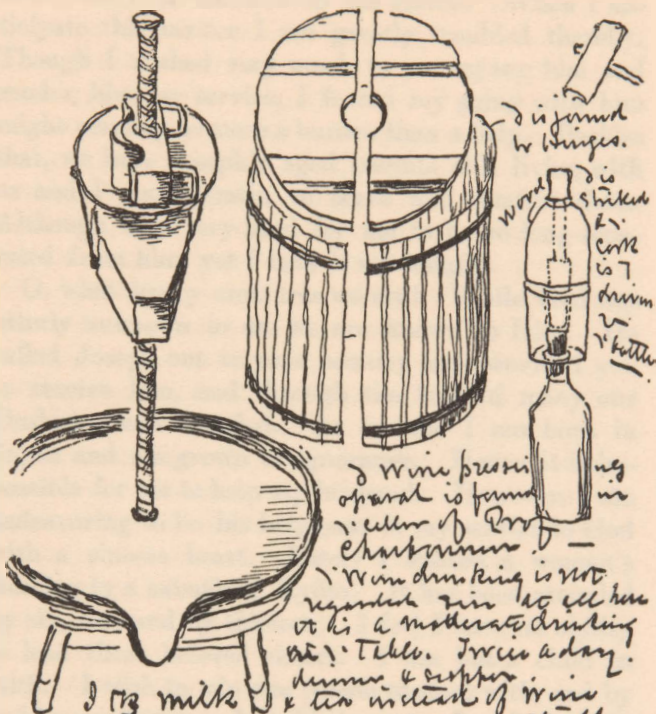 is found
by hinges.
wood
is
striked
&
Cork
is
driven
in
bottle
Wine pressing
aparat is found in
cellar of Prof
Charbonnier
Wine drinking is not
regarded sin at all here
it is a motherate drinking
at Table. Twice a day.
dinner & supper.
I Tk milk & tea instead of Wine